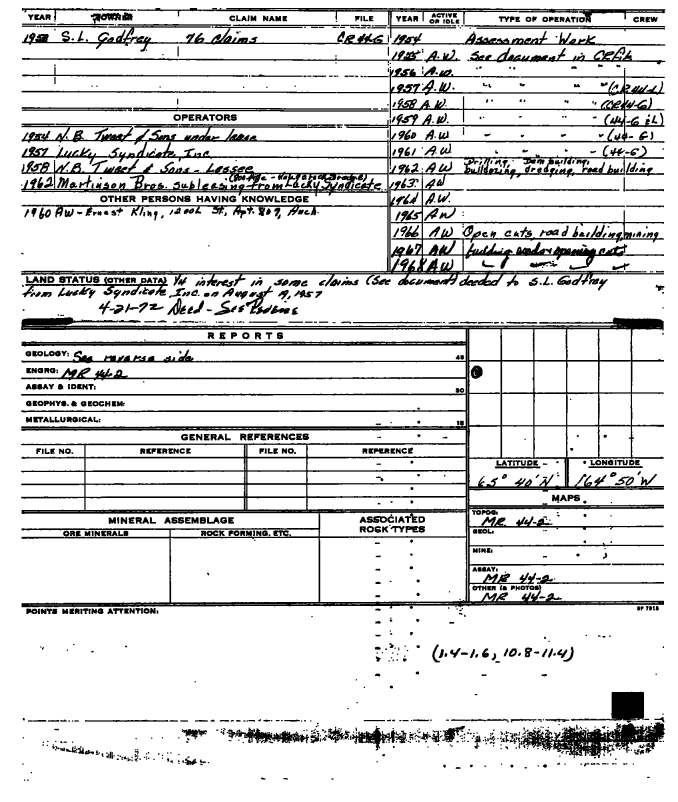 YEAR OWNER CLAIM NAME FILE YEAR ACTIVE OR IDLE TYPE OF OPERATION CREW
1953 S.L. Godfrey 76 Claims CR 44-G 1954 Assessment Work
1955 A.W. See document in CRFile
1956 A.W. " " "
1957 A.W. " " " (CR44-L)
1958 A.W. " " " (CR44-G)
OPERATORS 1959 A.W. " " " (44-G & L)
1954 N.B. Tweet & Sons under lease 1960 A.W. " " " (44-G)
1957 Lucky Syndicate, Inc. 1961 A.W. " " " (44-G)
1958 N.B. Tweet & Sons - Lessee 1962 A.W. Drilling, Dam building, bulldozing, dredging, road building
1962 Martinson Bros. subleasing from Lucky Syndicate 1963 AW
OTHER PERSONS HAVING KNOWLEDGE 1964 A.W.
1960 AW - Ernest Kling, St, Apt. 809, Anch. 1965 AW
1966 AW Open cuts, road building mining
1967 AW building opening cuts
1968 AW
LAND STATUS (OTHER DATA) 1/4 interest in some claims (See document) deeded to S.L. Godfrey
from Lucky Syndicate Inc. on August 9, 1957
4-21-72 Deed -
REPORTS
GEOLOGY: See reverse side 45
ENGRG: MR 44-2
ASSAY & IDENT: 30
GEOPHYS. & GEOCHEM:
METALLURGICAL: 15
GENERAL REFERENCES
FILE NO. REFERENCE FILE NO. REFERENCE
LATITUDE LONGITUDE
65° 40' N 164° 50' W
MAPS
MINERAL ASSEMBLAGE ASSOCIATED ROCK TYPES
ORE MINERALS ROCK FORMING, ETC.
TOPOG: MR 44-2
GEOL:
MINE:
ASSAY: MR 44-2
OTHER (& PHOTOS) MR 44-2
POINTS MERITING ATTENTION: SP 7915
(1.4-1.6, 10.8-11.4)